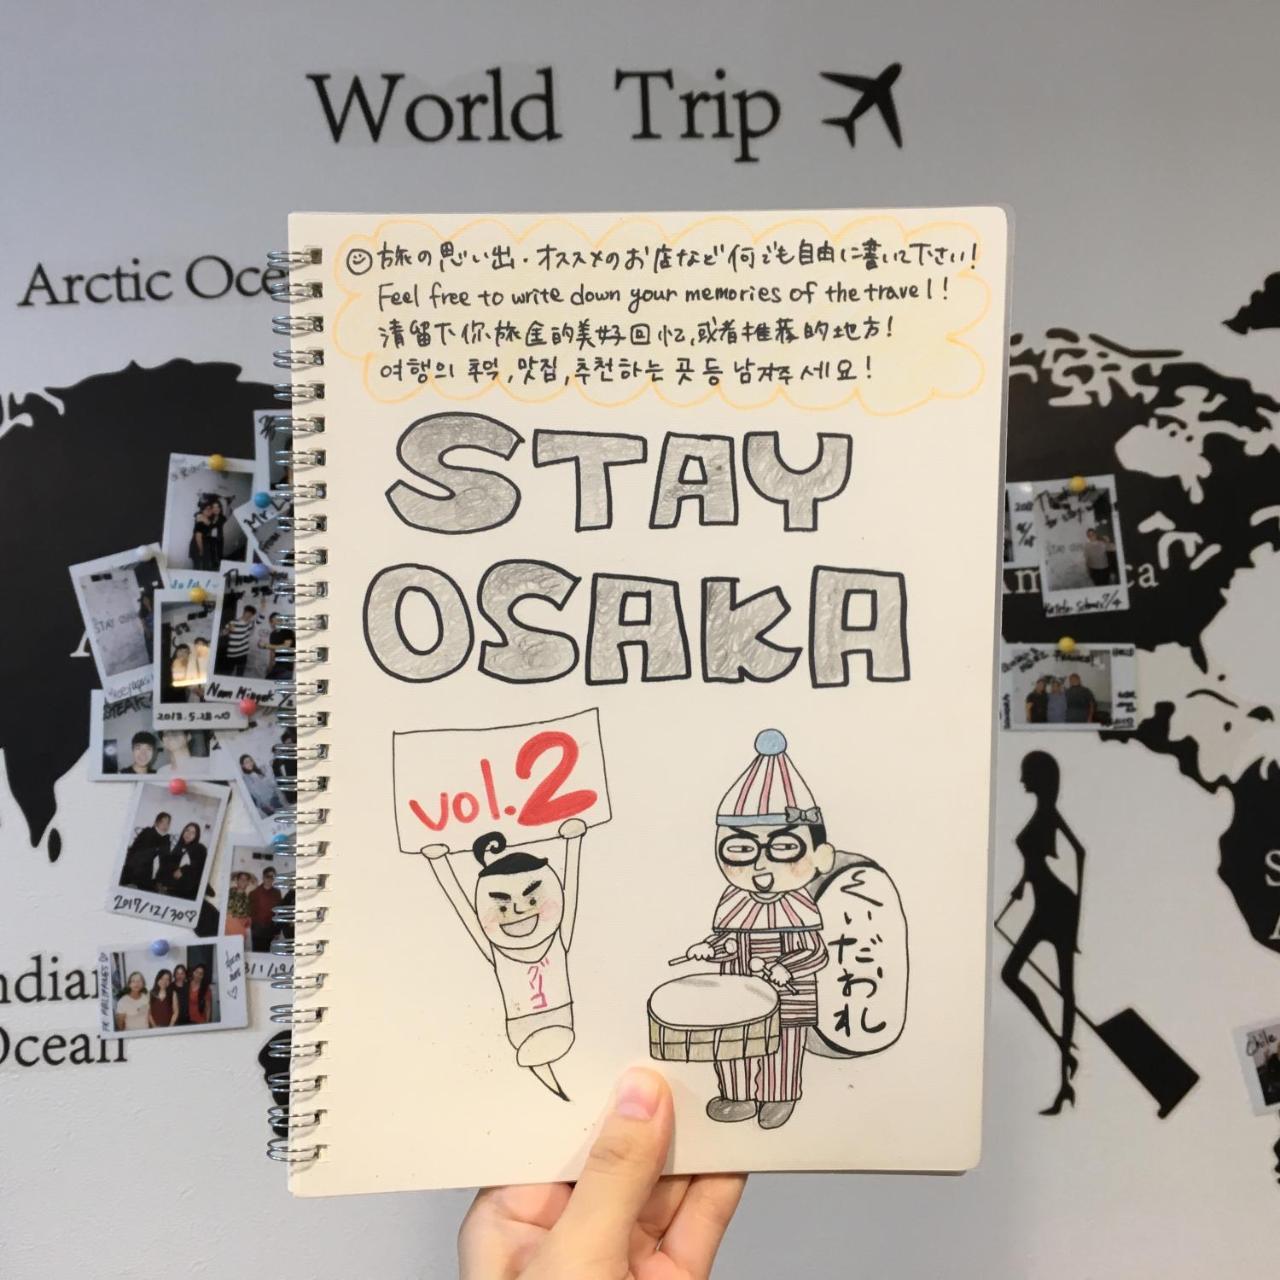 World Trip
Arctic Oce
旅の思い出・オススメのお店など何でも自由に書いて下さい!
Feel free to write down your memories of the travel!
清留下你旅途的美好回忆,或者推荐的地方!
여행의 추억,맛집,추천하는 곳 등 남겨주세요!
STAY
OSAKA
vol.2
グリコ
くいだおれ
ndian
Ocean
Mr.
STAY
Nam Mingek
2018.5.28~
2017/12/30♡
Chile